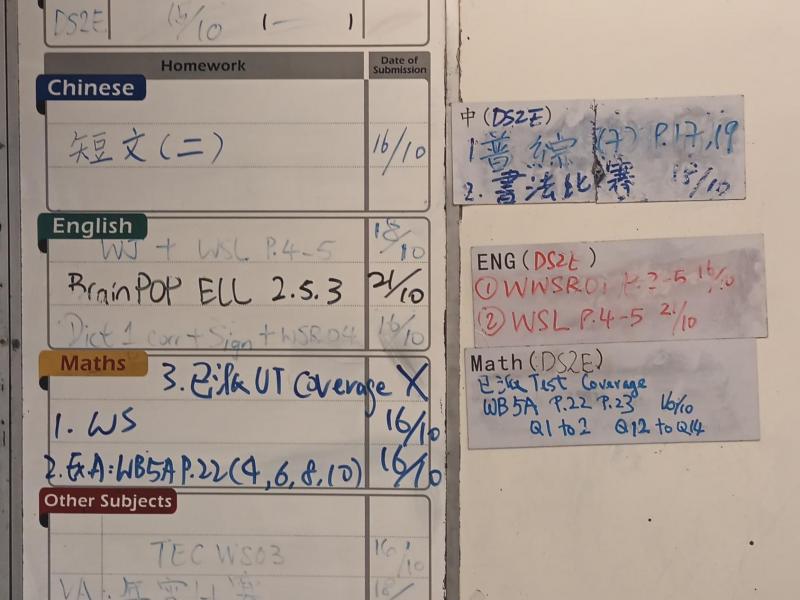 DS2E 15/10
Homework Date of Submission
Chinese
短文(二) 16/10
English
WJ + WSL P.4-5 18/10
BrainPOP ELL 2.5.3 21/10
Dict 1 corr + Sign + WSR04 16/10
Maths
3.已派UT Coverage X
1. WS 16/10
2.Ex.A:WB5A P.22(4,6,8,10) 16/10
Other Subjects
TEC WS03 16/10
VA: 18/
中(DS2E)
1 普綜(7) P.17,19
2.書法比賽 18/10
ENG(DS2E)
① WWSR01 P.2-5 16/10
② WSL P.4-5 21/10
Math(DS2E)
已派Test Coverage
WB5A P.22 P.23 16/10
Q1 to 2 Q12 to Q14